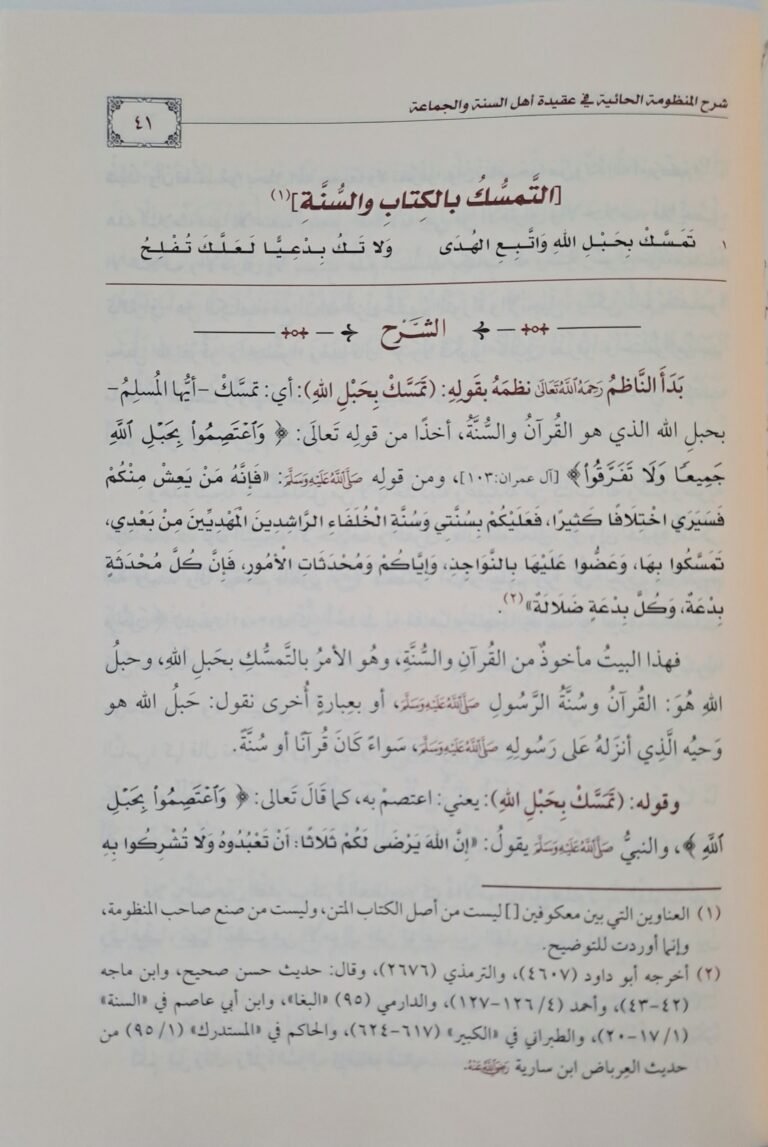 شرح المنظومة الحائية في عقيدة أهل السنة والجماعة
٤١
[التَّمسُّكُ بالكِتابِ والسُّنَّةِ](١)
١ تَمَسَّكْ بِحَبْلِ اللهِ وَاتَّبِعِ الهُدَى وَلا تَكُ بِدْعِيًّا لَعَلَّكَ تُفْلِحُ
الشَّرْح
بَدَأَ النَّاظمُ رَحِمَهُ اللَّهُ تَعَالَى نظمَهُ بقَولِهِ: (تَمَسَّكْ بِحَبْلِ اللهِ): أي: تمسَّكْ –أيُّها المُسلِمُ–
بحبلِ الله الذي هو القُرآنُ والسُّنَّةُ، أخذًا من قولِه تَعالَى: ﴿ وَٱعْتَصِمُوا۟ بِحَبْلِ ٱللَّهِ
جَمِيعًا وَلَا تَفَرَّقُوا۟﴾ [آل عمران:١٠٣]، ومن قولِه صَلَّى اللَّهُ عَلَيْهِ وَسَلَّمَ: «فَإِنَّهُ مَنْ يَعِشْ مِنْكُمْ
فَسَيَرَى اخْتِلَافًا كَثِيرًا، فَعَلَيْكُمْ بِسُنَّتي وَسُنَّةِ الْخُلَفَاءِ الرَّاشِدِينَ المَهْدِيِّينَ مِنْ بَعْدِي،
تَمَسَّكُوا بِهَا، وَعَضُّوا عَلَيْهَا بِالنَّوَاجِذِ، وَإِيَّاكُمْ وَمُحْدَثَاتِ الْأُمُورِ، فَإِنَّ كُلَّ مُحْدَثَةٍ
بِدْعَةٌ، وَكُلَّ بِدْعَةٍ ضَلَالَةٌ»(٢).
فهذا البيتُ مأخوذٌ من القُرآنِ والسُّنَّةِ، وهُو الأمرُ بالتَّمسُّكِ بحَبلِ اللهِ، وحبلُ
اللهِ هُوَ: القُرآنُ وسُنَّةُ الرَّسُولِ صَلَّى اللَّهُ عَلَيْهِ وَسَلَّمَ، أو بعِبارةٍ أُخرى نقول: حَبلُ الله هو
وَحيُه الَّذِي أنزَلهُ عَلى رَسُولِهِ صَلَّى اللَّهُ عَلَيْهِ وَسَلَّمَ، سَواءً كَانَ قُرآنًا أو سُنَّةً.
وقوله: (تَمَسَّكْ بِحَبْلِ اللهِ): يعني: اعتصمْ به، كما قَالَ تَعالى: ﴿ وَٱعْتَصِمُوا۟ بِحَبْلِ
ٱللَّهِ ﴾، والنبيُّ صَلَّى اللَّهُ عَلَيْهِ وَسَلَّمَ يقولُ: «إِنَّ اللهَ يَرْضَى لَكُمْ ثَلَاثًا: أَنْ تَعْبُدُوهُ وَلَا تُشْرِكُوا بِهِ
(١) العناوين التي بين معكوفين [] ليست من أصل الكتاب المتن، وليست من صنع صاحب المنظومة،
وإنما أوردت للتوضيح.
(٢) أخرجه أبو داود (٤٦٠٧)، والترمذي (٢٦٧٦)، وقال: حديث حسن صحيح، وابن ماجه
(٤٢–٤٣)، وأحمد (٤/ ١٢٦–١٢٧)، والدارمي (٩٥) «البغا»، وابن أبي عاصم في «السنة»
(١/ ١٧–٢٠)، والطبراني في «الكبير» (٦١٧–٦٢٤)، والحاكم في «المستدرك» (١/ ٩٥) من
حديث العِرباض ابن سارية رَضِيَ اللَّهُ عَنْهُ.